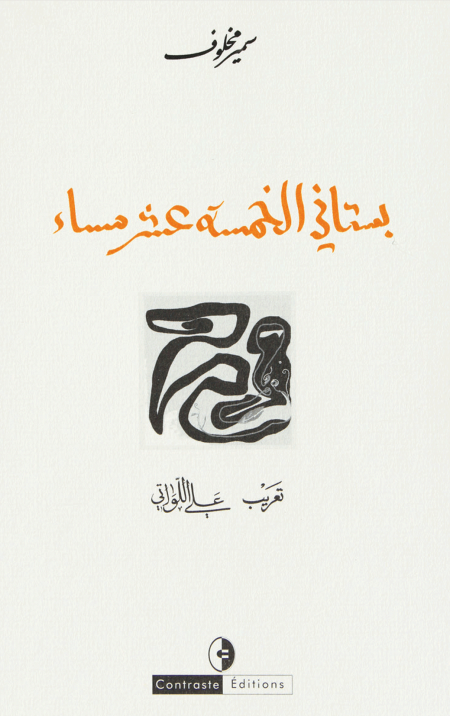 سمير مخلوف
بستاني الخمسة عشر مساء
تعريب علي اللّواتي
Contraste Éditions